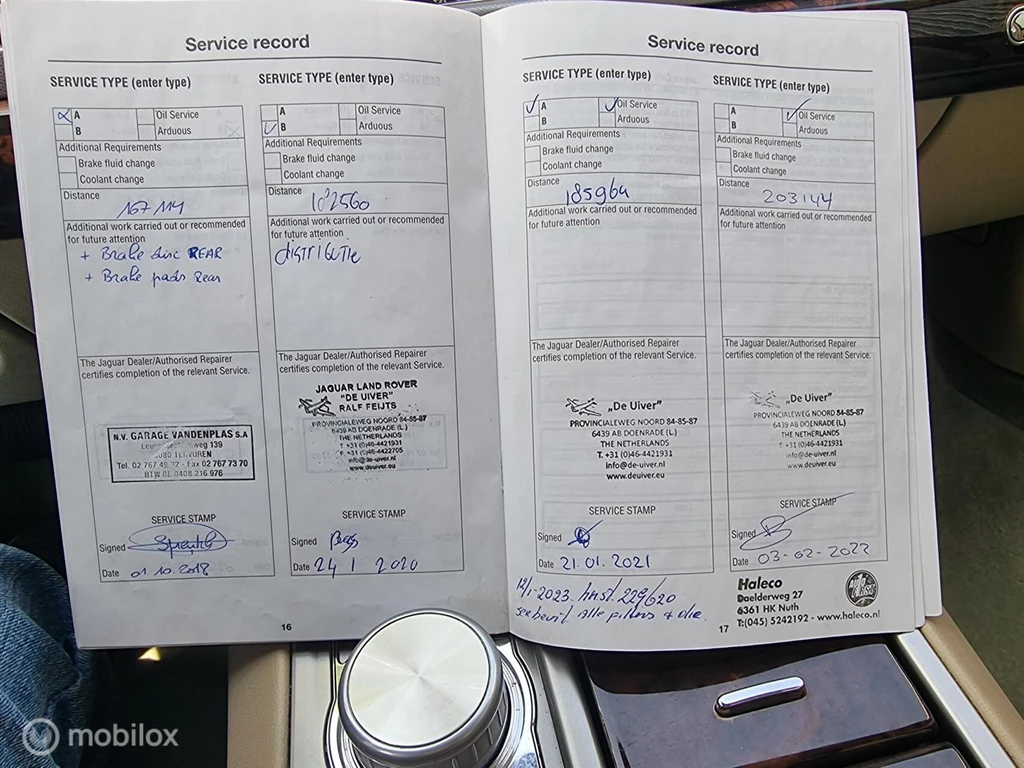 Service record
SERVICE TYPE (enter type)
A
Oil Service
B
Arduous
Additional Requirements
Brake fluid change
Coolant change
Distance
167 114
Additional work carried out or recommended
for future attention
+ Brake disc REAR
+ Brake pads Rear
The Jaguar Dealer/Authorised Repairer
certifies completion of the relevant Service.
N.V. GARAGE VANDENPLAS s.a
weg 139
3080 TERVUREN
Tel. 02 767 49 32 - fax 02 767 73 70
BTW BE 0408 216 976
SERVICE STAMP
Signed
Date 01.10.2018
SERVICE TYPE (enter type)
A
Oil Service
B
Arduous
Additional Requirements
Brake fluid change
Coolant change
Distance
182560
Additional work carried out or recommended
for future attention
DISTRIBUTIE
The Jaguar Dealer/Authorised Repairer
certifies completion of the relevant Service.
JAGUAR LAND ROVER
"DE UIVER"
RALF FEIJTS
PROVINCIALEWEG NOORD 84-85-87
6439 AB DOENRADE (L)
THE NETHERLANDS
T +31 (0)46-4421931
F +31 (0)46-4422705
info@de-uiver.nl
www.deuiver.eu
SERVICE STAMP
Signed
Date 24 1 2020
16
Service record
SERVICE TYPE (enter type)
A
Oil Service
B
Arduous
Additional Requirements
Brake fluid change
Coolant change
Distance
185964
Additional work carried out or recommended
for future attention
The Jaguar Dealer/Authorised Repairer
certifies completion of the relevant Service.
„De Uiver"
PROVINCIALEWEG NOORD 84-85-87
6439 AB DOENRADE (L)
THE NETHERLANDS
T. +31 (0)46-4421931
info@de-uiver.nl
www.deuiver.eu
SERVICE STAMP
Signed
Date 21.01.2021
SERVICE TYPE (enter type)
A
Oil Service
B
Arduous
Additional Requirements
Brake fluid change
Coolant change
Distance
203144
Additional work carried out or recommended
for future attention
The Jaguar Dealer/Authorised Repairer
certifies completion of the relevant Service.
„De Uiver"
PROVINCIALEWEG NOORD 84-85-87
6439 AB DOENRADE (L)
THE NETHERLANDS
T. +31 (0)46-4421931
info@de-uiver.nl
www.deuiver.eu
SERVICE STAMP
Signed
Date 03-02-2022
12/1-2023. kmst. 229620
Alle filters + olie.
17
Haleco
Daelderweg 27
6361 HK Nuth
T:(045) 5242192 - www.haleco.nl
mobilox